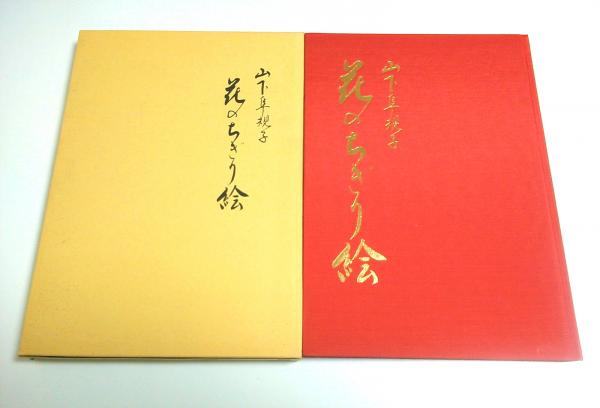 山下隼規子
花のちぎり絵
山下隼規子
花のちぎり絵